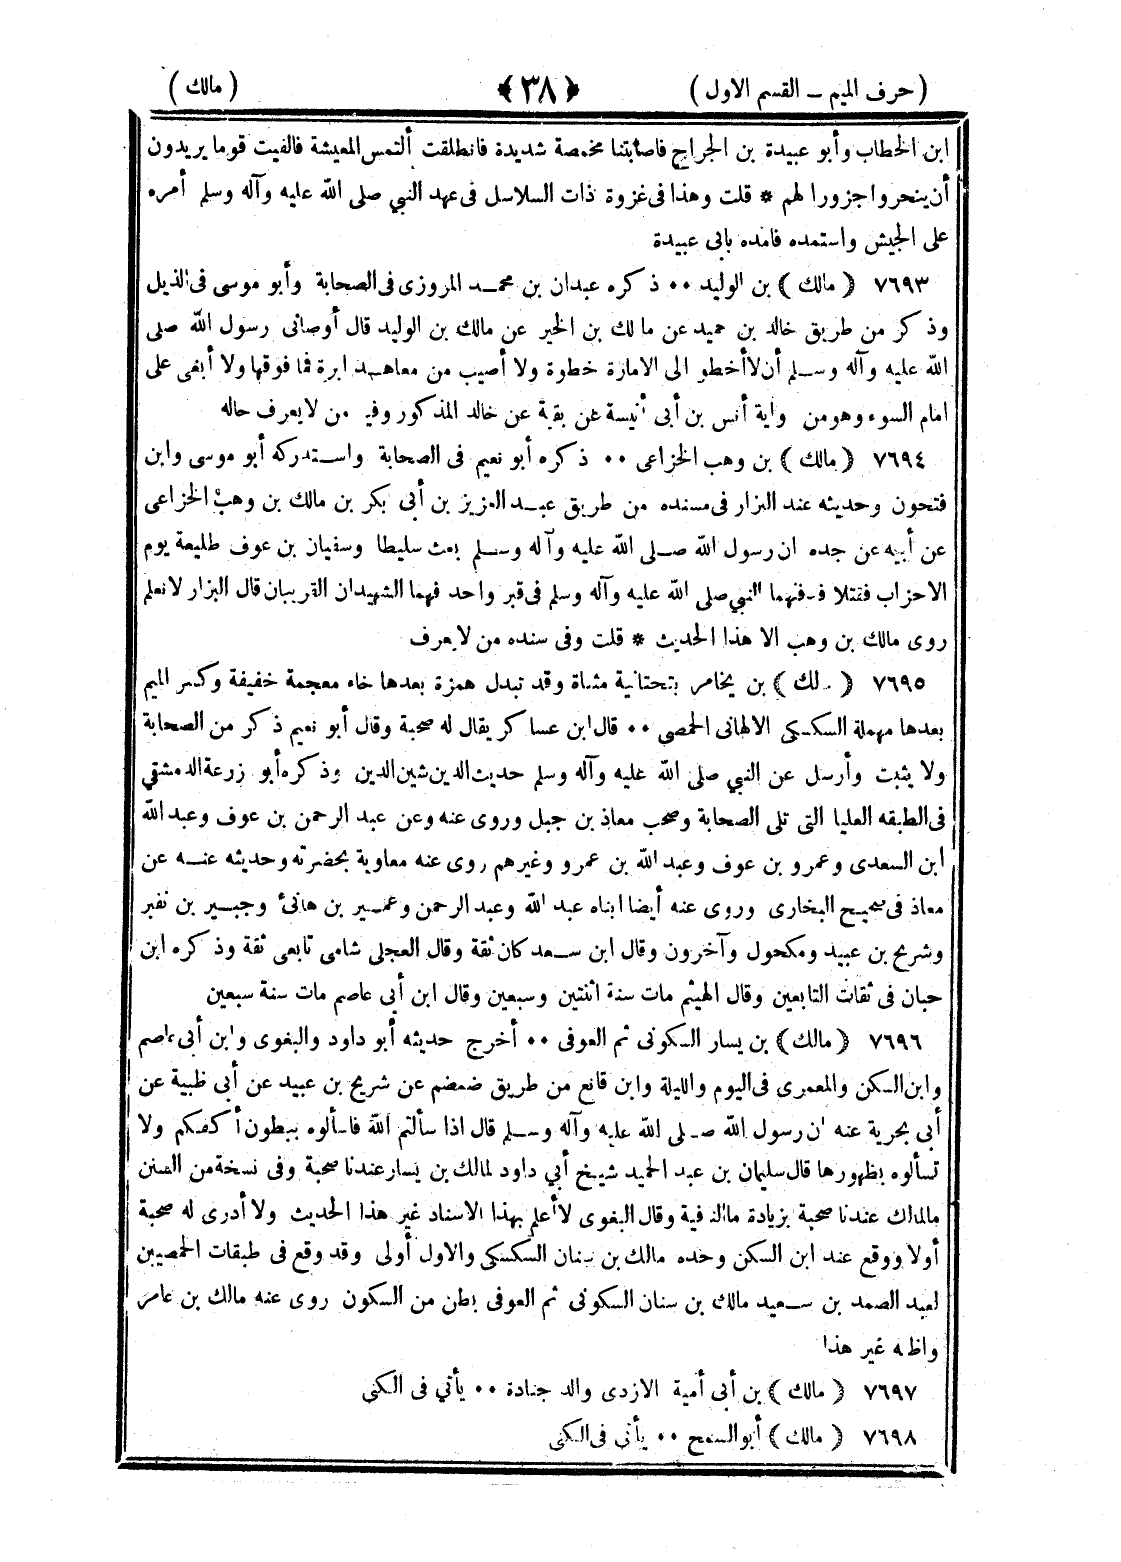 (حرف الميم ــ القسم الاول) ﴿٣٨﴾ (مالك)
ابن الخطاب وأبو عبيدة بن الجراح فاصابتنا مخمصة شديدة فانطلقت ألتمس المعيشة فالفيت قوما يريدون
أن ينحروا جزورا لهم * قلت وهذا فى غزوة ذات السلاسل فى عهد النبي صلى الله عليه وآله وسلم أمره
على الجيش واستمده فامده بابى عبيدة
٧٦٩٣ (مالك) بن الوليد ۰۰ ذكره عبدان بن محمد المروزى فى الصحابة وأبو موسى فى الذيل
وذكر من طريق خالد بن حميد عن مالك بن الخير عن مالك بن الوليد قال أوصانى رسول الله صلى
الله عليه وآله وسلم أن لا أخطو الى الامارة خطوة ولا أصيب من معاهد ابرة فما فوقها ولا أبغى على
امام السوء وهو من رواية أنس بن أبى أنيسة عن بقية عن خالد المذكور وفيه من لا يعرف حاله
٧٦٩٤ (مالك) بن وهب الخزاعى ۰۰ ذكره أبو نعيم فى الصحابة واستدركه أبو موسى وابن
فتحون وحديثه عند البزار فى مسنده من طريق عبد العزيز بن أبى بكر بن مالك بن وهب الخزاعى
عن أبيه عن جده ان رسول الله صلى الله عليه وآله وسلم بعث سليطا وسفيان بن عوف طليعة يوم
الاحزاب فقتلا فدفنهما النبي صلى الله عليه وآله وسلم فى قبر واحد فهما الشهيدان القريبان قال البزار لا نعلم
روى مالك بن وهب الا هذا الحديث * قلت وفى سنده من لا يعرف
٧٦٩٥ (مالك) بن يخامر بتحتانية مثناة وقد تبدل همزة بعدها خاء معجمة خفيفة وكسر الميم
بعدها مهملة السكسكى الالهانى الحمصى ۰۰ قال ابن عساكر يقال له صحبة وقال أبو نعيم ذكر من الصحابة
ولا يثبت وأرسل عن النبي صلى الله عليه وآله وسلم حديث الدين شين الدين وذكره أبو زرعة الدمشقي
فى الطبقه العليا التى تلى الصحابة وصحب معاذ بن جبل وروى عنه وعن عبد الرحمن بن عوف وعبد الله
ابن السعدى وعمرو بن عوف وعبد الله بن عمرو وغيرهم روى عنه معاوية بحضرته وحديثه عنه عن
معاذ فى صحيح البخارى وروى عنه أيضا ابناه عبد الله وعبد الرحمن وعمير بن هانئ وجبير بن نفير
وشريح بن عبيد ومكحول وآخرون وقال ابن سعد كان ثقة وقال العجلى شامى تابعى ثقة وذكره ابن
حبان فى ثقات التابعين وقال الهيثم مات سنة اثنتين وسبعين وقال ابن أبى عاصم مات سنة سبعين
٧٦٩٦ (مالك) بن يسار السكونى ثم العوفى ۰۰ أخرج حديثه أبو داود والبغوى وابن أبى عاصم
وابن السكن والمعمرى فى اليوم والليلة وابن قانع من طريق ضمضم عن شريح بن عبيد عن أبى ظبية عن
أبى بحرية عنه ان رسول الله صلى الله عليه وآله وسلم قال اذا سألتم الله فاسألوه ببطون أكفكم ولا
تسألوه بظهورها قال سليمان بن عبد الحميد شيخ أبى داود لمالك بن يسار عندنا صحبة وفى نسخة من السنن
مالمالك عندنا صحبة بزيادة ما النافية وقال البغوى لا أعلم بهذا الاسناد غير هذا الحديث ولا أدرى له صحبة
أولا ووقع عند ابن السكن وحده مالك بن سنان السكسكى والاول أولى وقد وقع فى طبقات الحمصيين
لعبد الصمد بن سعيد مالك بن سنان السكونى ثم العوفى بطن من السكون روى عنه مالك بن عامر
واظنه غير هذا
٧٦٩٧ (مالك) بن أبى أمية الازدى والد جنادة ۰۰ يأتي فى الكنى
٧٦٩٨ (مالك) أبو السمح ۰۰ يأتى فى الكنى